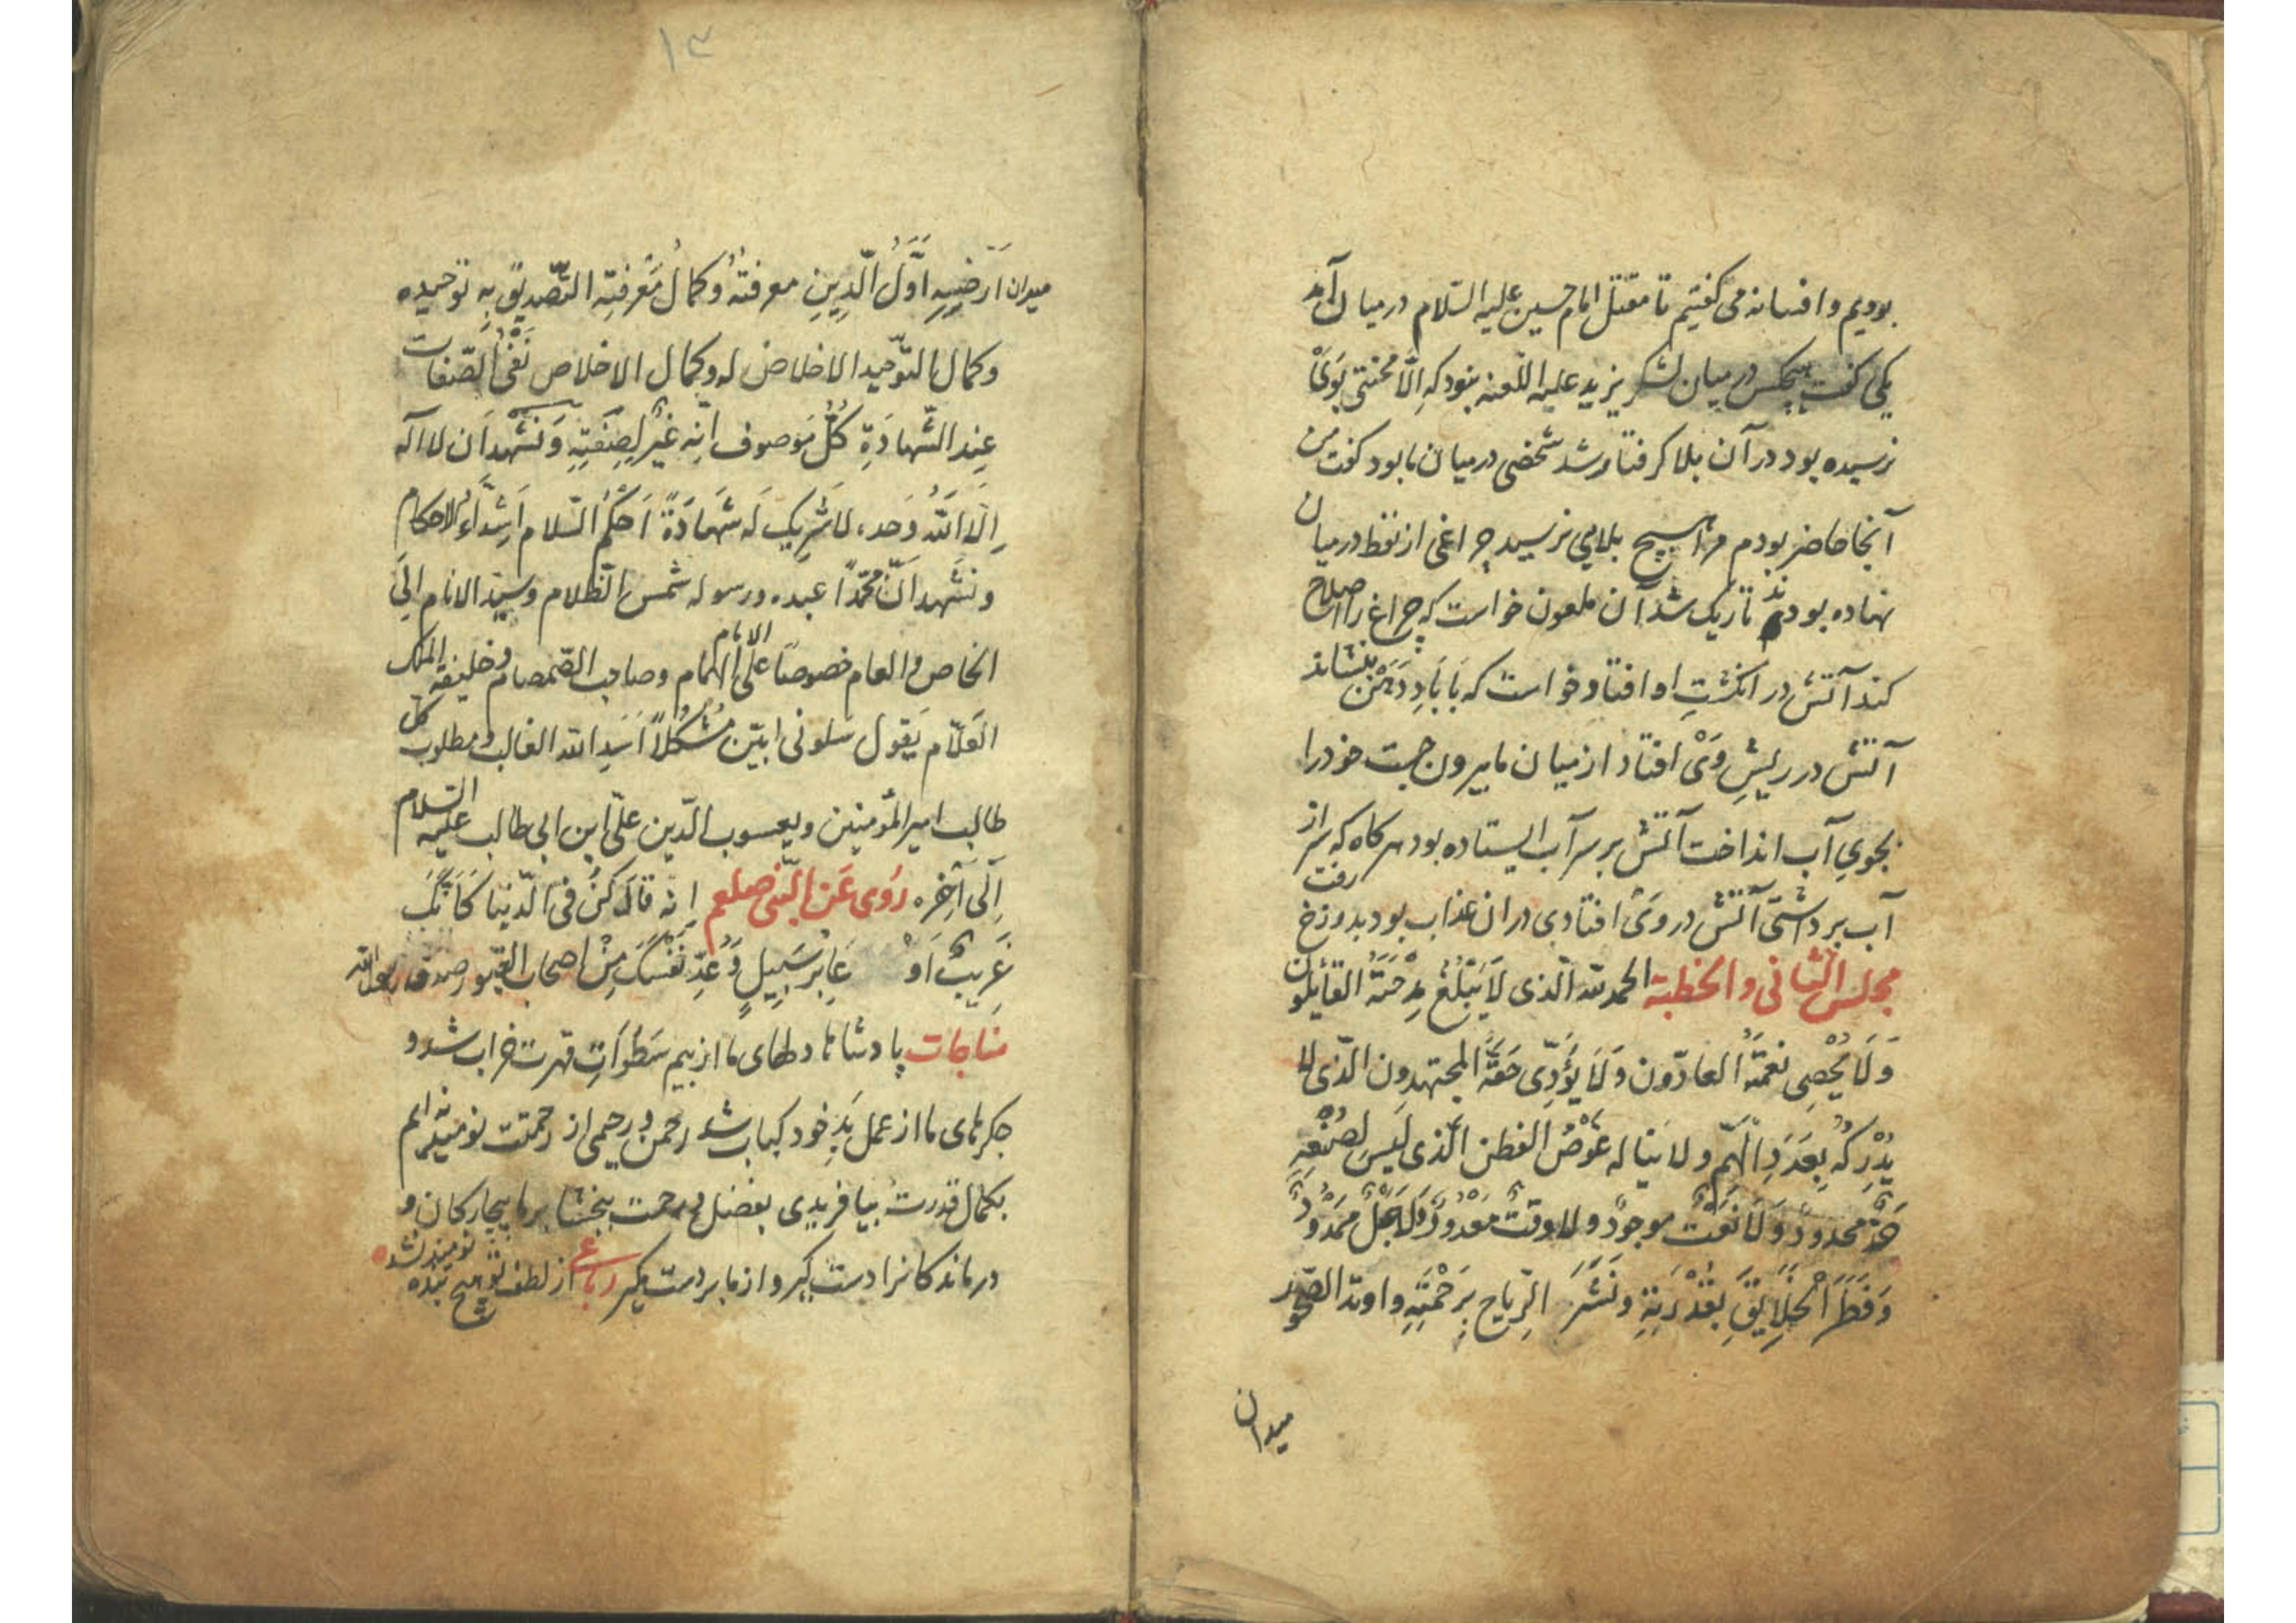 بودیم و افسانه می کفتیم تا مقتل امام حسین علیه السّلام در میان آمد
یکی کفت هیچکس در میان لشکر یزید علیه اللّعنه بنود که اِلّا محنتی بَوَیْ
نرسیده بود در آن بلا کرفتار شد شخصی در میان ما بود کفت من
آنجا حاضر بودم مرا هیچ بلایی نرسید چراغی از نفط در میان
نهاده بودند تاریک شد آن ملعون خواست که چراغ را اصلاح
کند آتش در انکشتِ او افتاد خواست که بَا بَادِ دَهَنْ بنشاند
آتش در ریشِ وَیْ افتاد از میان ما بیرون جست خود را
بجویِ آب انداخت آتش بر سر آب ایستاده بود هرکاه که سر از
آب برداشتی آتش در وَیْ افتادی در ان عذاب بود بدوزخ رفت
مجلس الثّانی و الخطبة الحمد للّه الّذی لَا یَبْلُغُ مِدْحَتَهُ القآیلون
وَلَا یُحْصِی نعمَتَهُ العادّون وَلَا یُؤَدِّی حَقَّهُ المجتهدون الّذی لا
یُدْرِکُهُ بُعَدَ دِ الْهِمَّمِ ولا یناله غَوْصُ الفطن الّذی لَیسَ لِصُنْعِهِ
حَدٌّ محدودٌ وَلَا نَعْتٌ موجودٌ ولا وقتٌ مَعْدُودٌ وَلَا اَجَلٌ مَمْدُودٌ
وَفَطَرَ الْخَلَایِقَ بِقُدْرَتِهِ وَنَشَرَ الرِّیاح بِرَحْمَتِهِ واوتد الصّخور
میدان
۱۳
میدان اَرْضِهِ اَوَّلُ الّدِینِ معرفتهُ وکمالُ مَعْرفتِه التّصدیقُ بِهِ توحیده
وکمال التوّحید الاخلاص له وکمال الاخلاص نَفْیُ الصّفات
عِند الشّهادَةِ کُلُّ مَوصوف اَنِّه غَیْرُ لِصِفَتِهِ وَنَشْهَد اَن لا اله
اِلّا اللّهُ وَحده لاشَرِیک لَه شَهادَةً اَحْکُمُ السّلام اَشِدّآءُ الاحکام
ونَشْهد اَنَّ محمّدًا عبده ورسوله شمس الظّلام وسیّد الانام اِلَی
الخاص و العام خصوصًا علیّ الامام الهمام وصاحب الصّمصام وخلیفه الملک
العَلّام یَقول سَلونی ابیّن مُشْکلاً اَسَدِ اللّه الغالب و مطلوب کل
طالب امیر المؤمنین ویعسوب الدّین علیّ ابن ابی طالب علیه السّلام
اِلَی آخِرِه رَوُی عَن النّبی صلعم اِنّه قالَ کُنْ فی الدّنیا کَاَنّکَ
غَریبٌ اَوْ عَابِرُ سَبِیلٍ وَعُدّ نَفْسَکَ مِنْ اصحاب القبور صدق رسول اللّه
مناجات پادشاها دلهای ما از بیم سَطَواَتِ قهرت خراب شد و
جکرهای ما از عمل بَدِ خود کباب شد رحمن و رحیمی از رحمتت نومید نه ایم
بکمال قدرت بیافریدی بفضل و رحمت ببخشا بر ما بیچارکان و
درماندکانرا دست کیر و از ما بر دست مکیر رباعی از لطف تو هیچ بنده نومید نشد